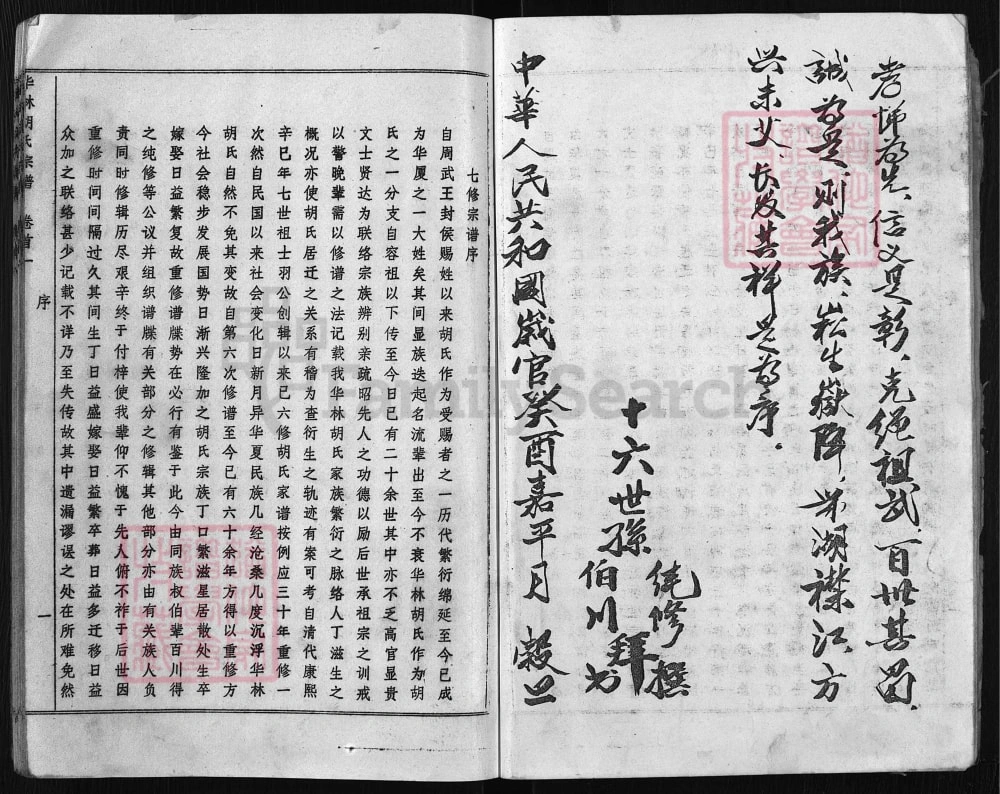 孝悌为先、信义是彰、克绳祖武、百世其昌、
誠为是、则我族、崧生嶽降、弟湖襟江方
兴未艾、长发其祥是为序.
十六世孫
统修撰
伯川拜书
中華人民共和國歲官癸酉嘉平月 穀旦
华林胡氏宗谱 卷首一
序
一
七修宗谱序
自周武王封侯赐姓以来胡氏作为受赐者之一历代繁衍绵延至今已成
为华厦之一大姓矣其间显族迭起名流辈出至今不衰华林胡氏作为胡
氏之一分支自容祖以下传至今日已有二十余世其中亦不乏高官显贵
文士贤达为联络宗族辨别亲疏昭先人之功德以励后世承祖宗之训戒
以警晚辈需以修谱之法记载我华林胡氏家族繁衍之脉络人丁滋生之
概况亦使胡氏居迁之关系有稽为查衍生之轨迹有案可考自清代康熙
辛巳年七世祖士羽公创辑以来已六修胡氏家谱按例应三十年重修一
次然自民国以来社会变化日新月异华夏民族几经沧桑几度沉浮华林
胡氏自然不免其变故自第六次修谱至今已有六十余年方得以重修方
今社会稳步发展国势日渐兴隆加之胡氏宗族丁口繁滋星居散处生卒
嫁娶日益繁复故重修谱牒势在必行有鉴于此今由同族权伯辈百川得
之纯修等公议并组织谱牒有关部分之修辑其他部分亦由有关族人负
责同时修辑历尽艰辛终于付梓使我辈仰不愧于先人俯不祚于后世因
重修时间间隔过久其间生丁日益盛嫁娶日益繁卒葬日益多迁移日益
众加之联络甚少记载不详乃至失传故其中遗漏谬误之处在所难免然
FamilySearch